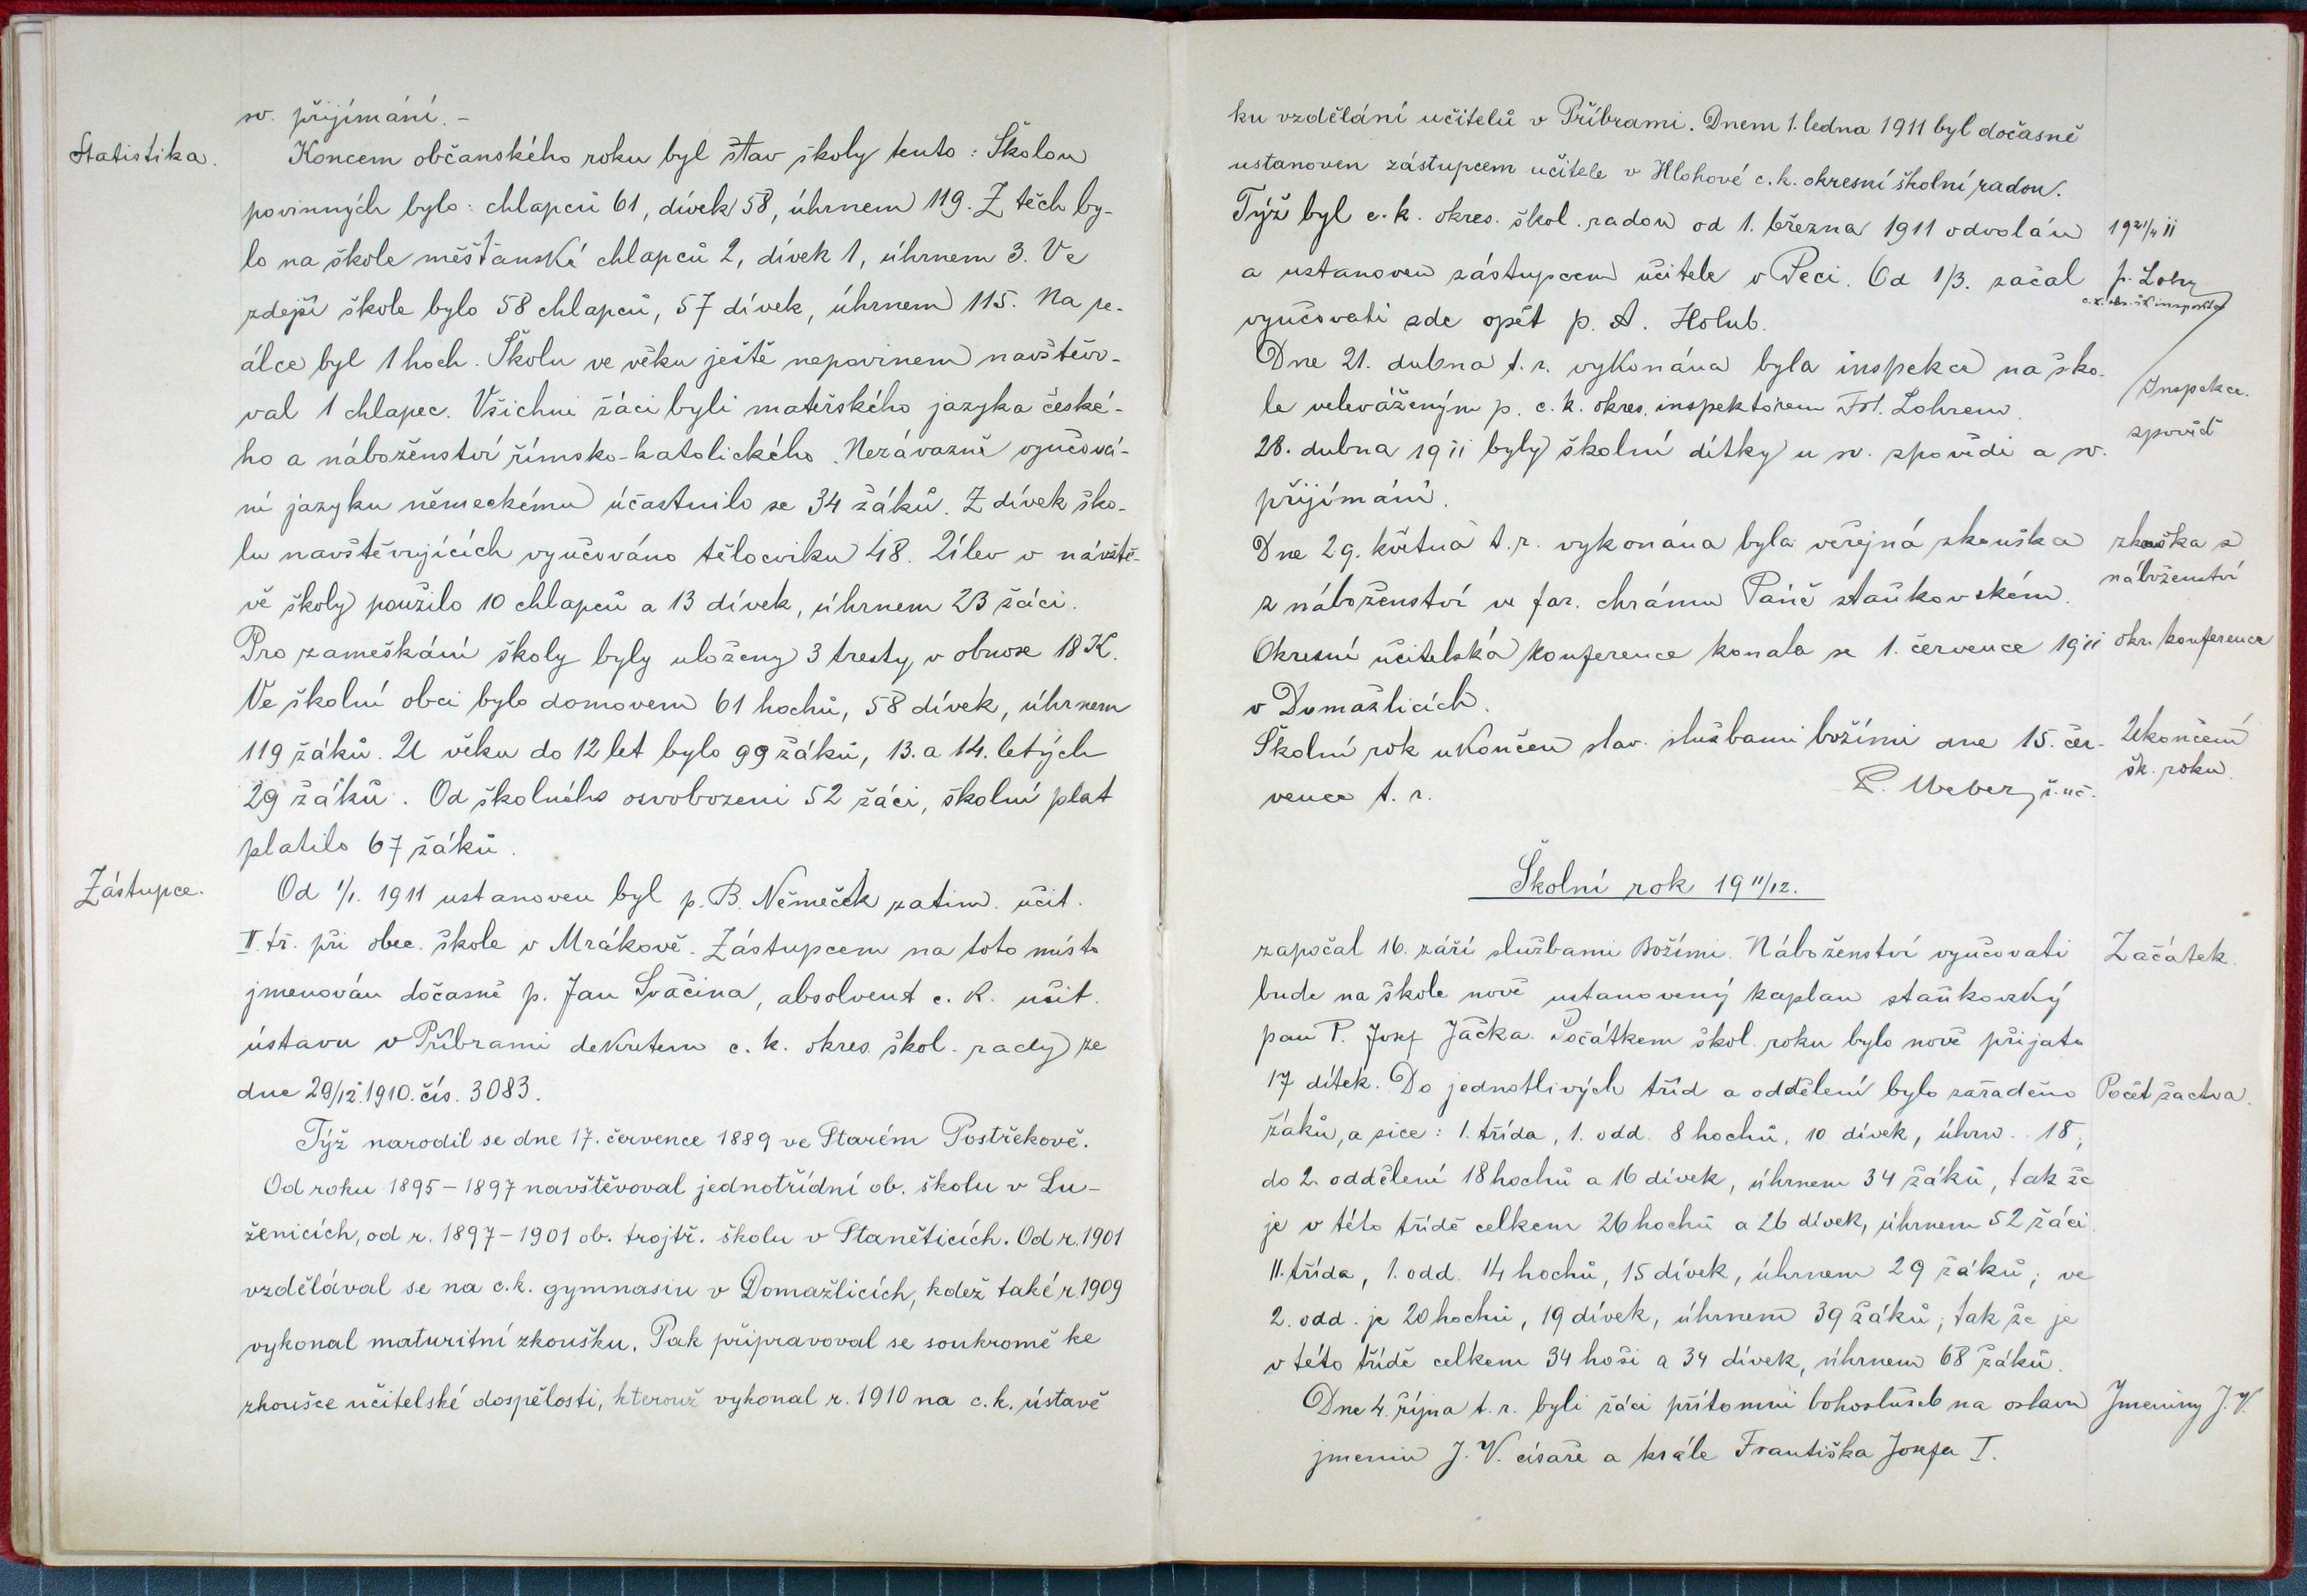 sv. přijímání. -
Statistika.
Koncem občanského roku byl stav školy tento: Školou
povinných bylo: chlapců 61, dívek 58, úhrnem 119. Z těch by-
lo na škole měšťanské chlapců 2, dívek 1, úhrnem 3. Ve
zdejší škole bylo 58 chlapců, 57 dívek, úhrnem 115. Na re-
álce byl 1 hoch. Školu ve věku ještě nepovinem navštěvo-
val 1 chlapec. Všichni žáci byli mateřského jazyka české-
ho a náboženství římsko-katolického. Nezávazně vyučová-
ní jazyku německému účastnilo se 34 žáků. Z dívek ško-
lu navštěvujících vyučováno tělocviku 48. Úlev v návště-
vě školy použilo 10 chlapců a 13 dívek, úhrnem 23 žáci.
Pro zameškání školy byly uloženy 3 tresty v obnose 18 K.
Ve školní obci bylo domovem 61 hochů, 58 dívek, úhrnem
119 žáků. U věku do 12 let bylo 99 žáků, 13. a 14. letých
29 žáků. Od školného osvobozeni 52 žáci, školní plat
platilo 67 žáků.
Zástupce.
Od 1/1. 1911 ustanoven byl p. B. Němeček zatim. učit.
II. tř. při obec. škole v Mrákově. Zástupcem na toto místo
jmenován dočasně p. Jan Svačina, absolvent c. k. učit.
ústavu v Příbrami dekretem c. k. okres. škol. rady ze
dne 29/12. 1910. čís. 3083.
Týž narodil se dne 17. července 1889 ve Starém Postřekově.
Od roku 1895-1897 navštěvoval jednotřídní ob. školu v Lu-
ženicích, od r. 1897-1901 ob. trojtř. školu v Staněticích. Od r. 1901
vzdělával se na c.k. gymnasiu v Domažlicích, kdež také r. 1909
vykonal maturitní zkoušku. Pak připravoval se soukromě ke
zkoušce učitelské dospělosti, kterouž vykonal r. 1910 na c. k. ústavě
ku vzdělání učitelů v Příbrami. Dnem 1. ledna 1911 byl dočasně
ustanoven zástupcem učitele v Hlohové c. k. okresní školní radou.
Týž byl c. k. okres. škol. radou od 1. března 1911 odvolán
a ustanoven zástupcem učitele v Peci. Od 1/3. začal
vyučovati zde opět p. A. Holub.
19 21/4 11
c.k. okr. šk. inspektor
Dne 21. dubna t. r. vykonána byla inspekce na ško-
le veleváženým p. c. k. okres. inspektorem Fr. Lohrem.
Inspekce.
28. dubna 1911 byly školní dítky u sv. zpovědi a sv.
přijímání.
zpověď
Dne 29. května t. r. vykonána byla veřejná zkouška
z náboženství ve far. chrámu Páně staňkovském.
zkouška z
náboženství
Okresní učitelská konference konala se 1. července 1911
v Domažlicích.
okr. konference
Školní rok ukončen slav. službami božími dne 15. čer-
vence t. r.
Ukončení
šk. roku.
R. Weber, ř. uč.
Školní rok 1911/12.
započal 16. září službami Božími. Náboženství vyučovati
Začátek.
bude na škole nově ustanovený kaplan staňkovský
pan P. Josef Jačka. Počátkem škol. roku bylo nově přijato
17 dítek. Do jednotlivých tříd a oddělení bylo zařaděno
Počet žactva.
žáků, a sice: 1. třída, 1. odd. 8 hochů, 10 dívek, úhrn. . 18;
do 2. oddělení 18 hochů a 16 dívek, úhrnem 34 žáků, tak že
je v této třídě celkem 26 hochů a 26 dívek, úhrnem 52 žáci.
II. třída, 1. odd. 14 hochů, 15 dívek, úhrnem 29 žáků; ve
2. odd. je 20 hochů, 19 dívek, úhrnem 39 žáků; tak že je
v této třídě celkem 34 hoši a 34 dívek, úhrnem 68 žáků.
Dne 4. října t. r. byli žáci přítomni bohoslužeb na oslavu
Jmeniny J. V.
jmenin J. V. císaře a krále Františka Josefa I.